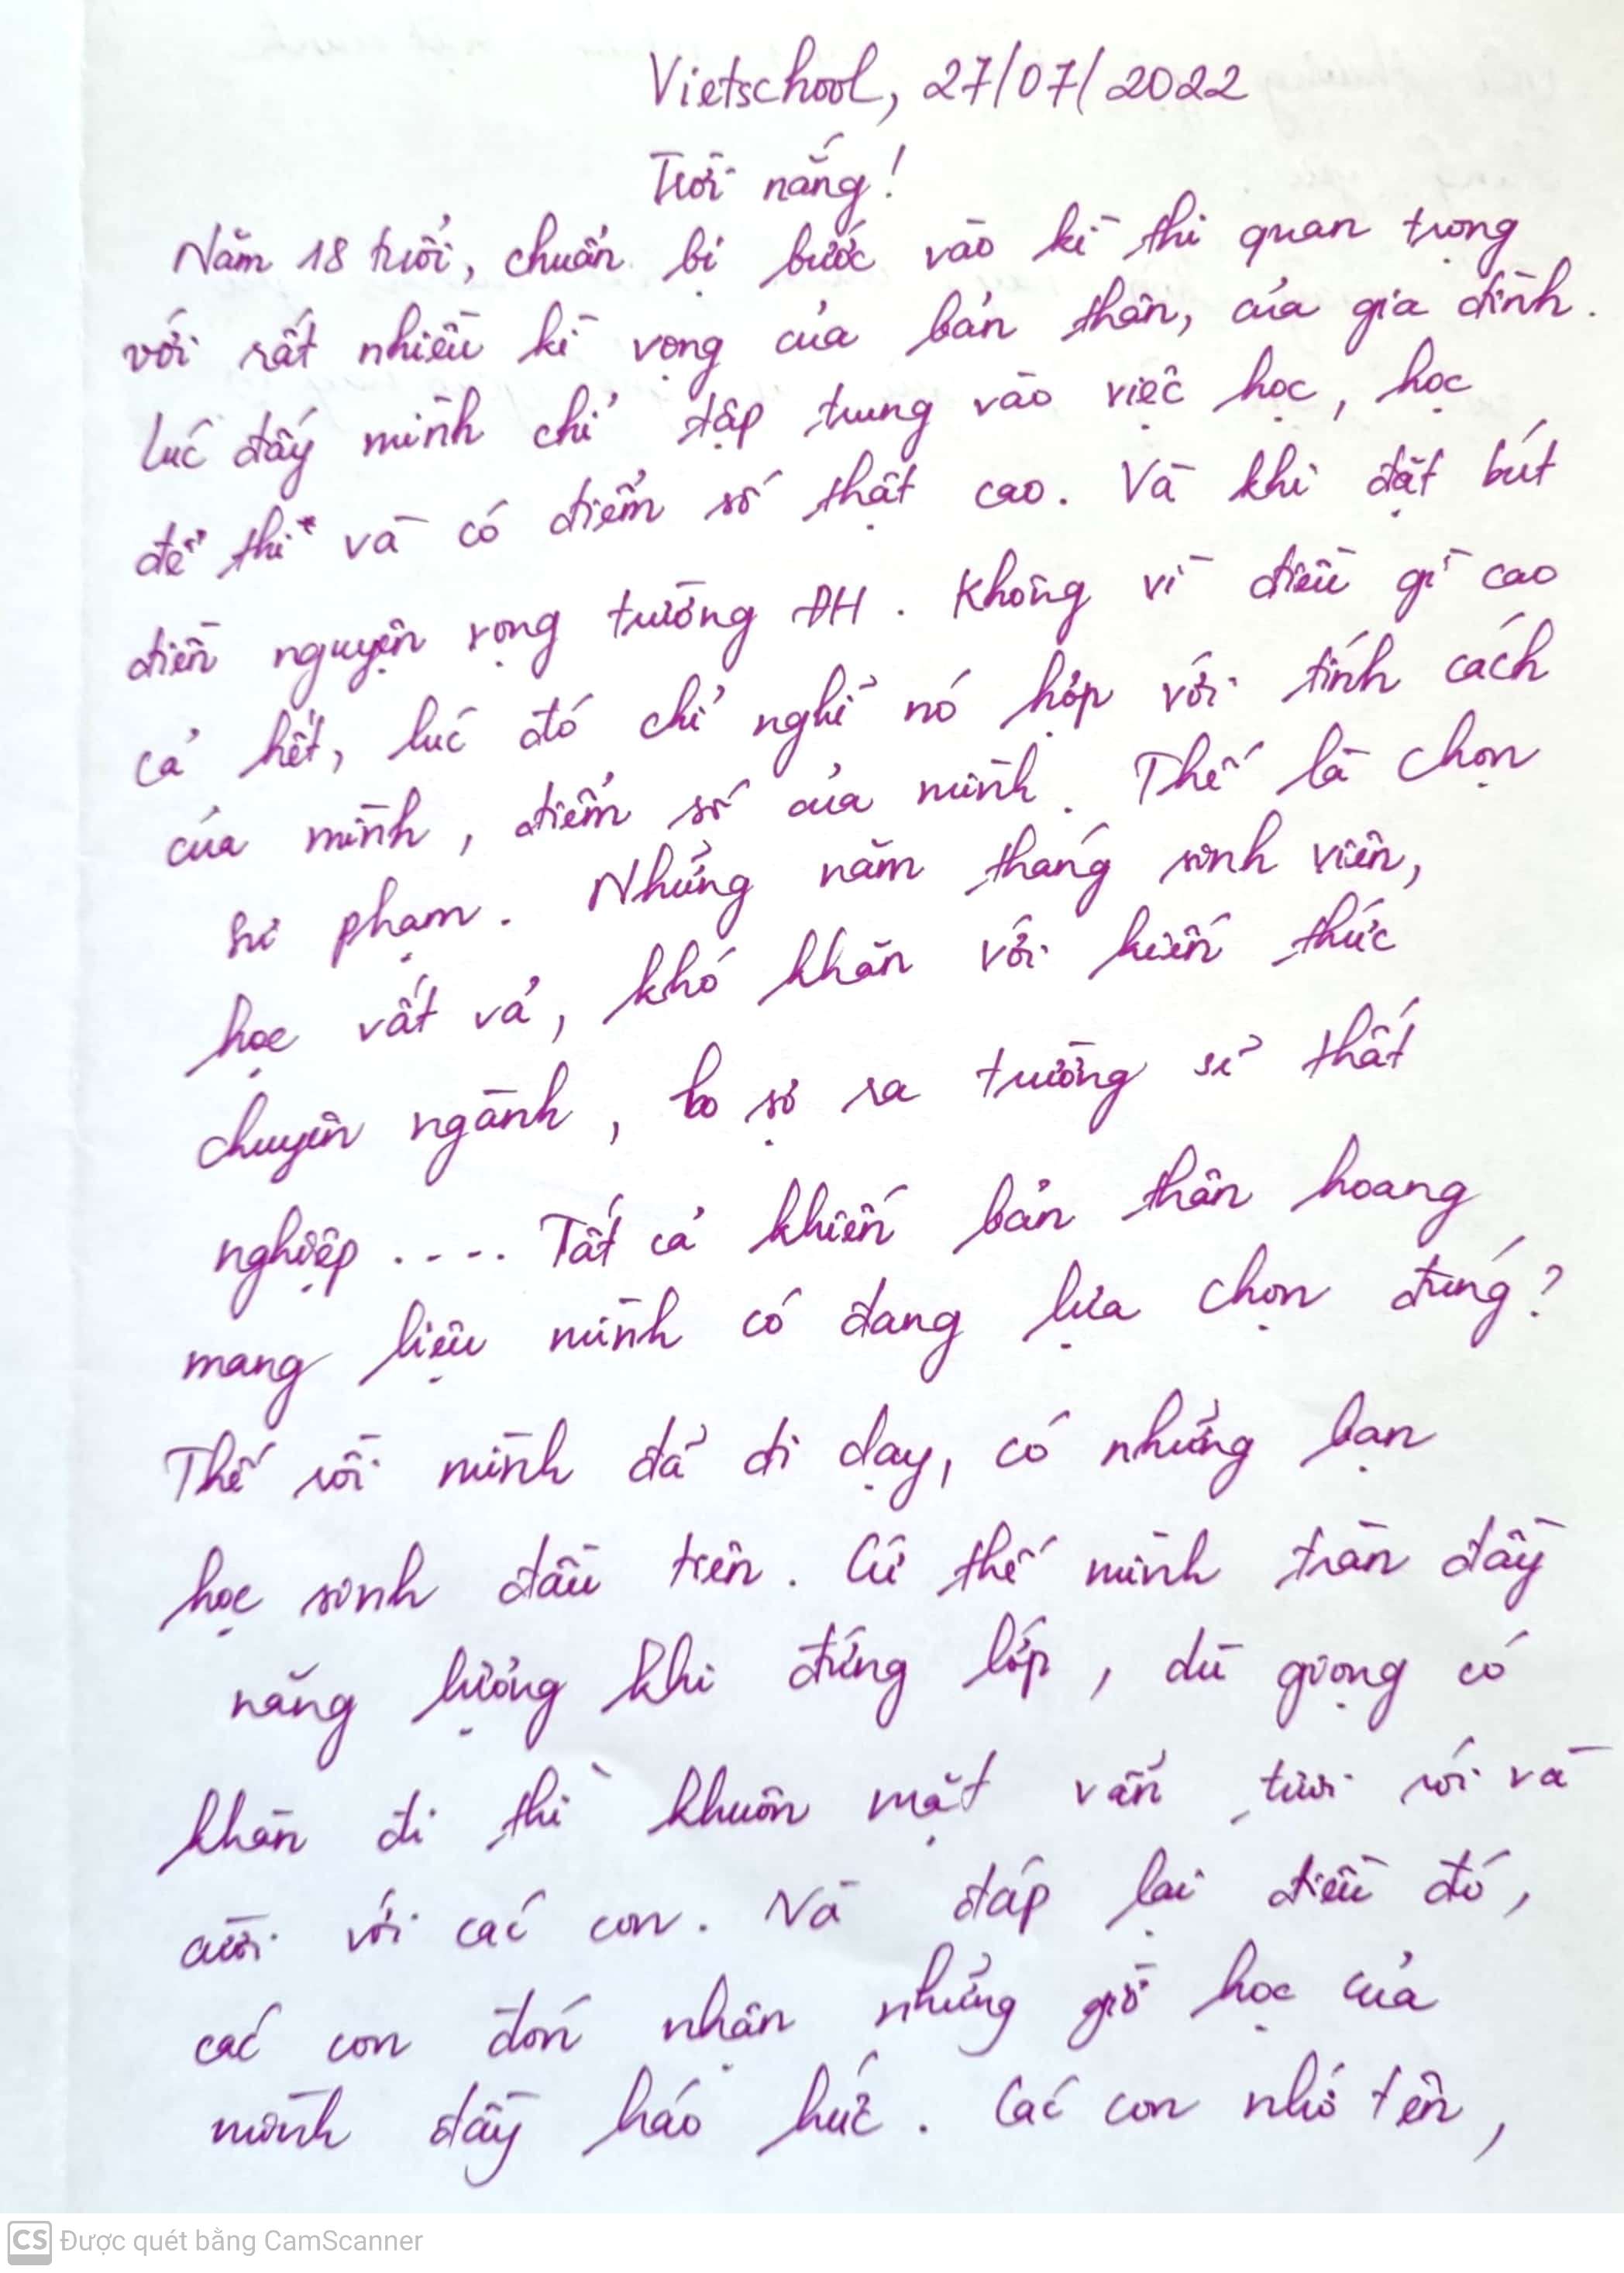 Vietschool, 27/07/2022
Trời nắng!
Năm 18 tuổi, chuẩn bị bước vào kì thi quan trọng
với rất nhiều kì vọng của bản thân, của gia đình.
Lúc đấy mình chỉ tập trung vào việc học, học
để thi và có điểm số thật cao. Và khi đặt bút
điền nguyện vọng trường ĐH. Không vì điều gì cao
cả hết, lúc đó chỉ nghĩ nó hợp với tính cách
của mình, điểm số của mình. Thế là chọn
sư phạm. Những năm tháng sinh viên,
học vất vả, khó khăn với kiến thức
chuyên ngành, lo sợ ra trường sẽ thất
nghiệp ..... Tất cả khiến bản thân hoang
mang liệu mình có đang lựa chọn đúng?
Thế rồi mình đã đi dạy, có những bạn
học sinh đầu tiên. Cứ thế mình tràn đầy
năng lượng khi đứng lớp, dù giọng có
khàn đi thì khuôn mặt vẫn tươi rói và
cười với các con. Và đáp lại điều đó,
các con đón nhận những giờ học của
mình đầy háo hức. Các con nhớ tên,
CS Được quét bằng CamScanner